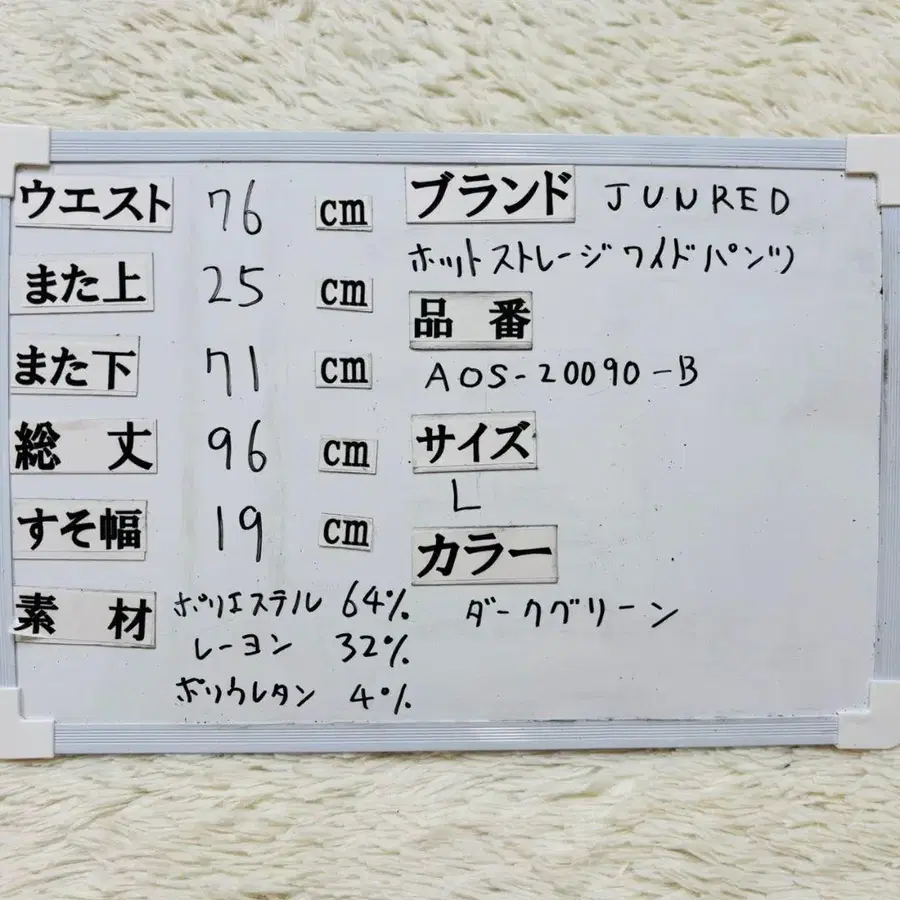 ウエスト 76 cm
また上 25 cm
また下 71 cm
総丈 96 cm
すそ幅 19 cm
素材 ポリエステル 64%
レーヨン 32%
ポリウレタン 4%
ブランド JUNRED
ホットストレージワイドパンツ
品番
AOS-20090-B
サイズ
L
カラー
ダークグリーン